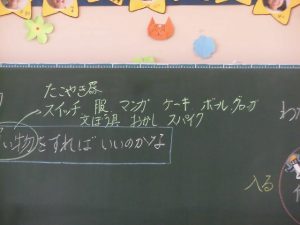 たこやき器
スイッチ 服 マンガ ケーキ ボール グローブ
文ぼう具 おかし スパイク
い物をすれば いいのかな
わ
入る